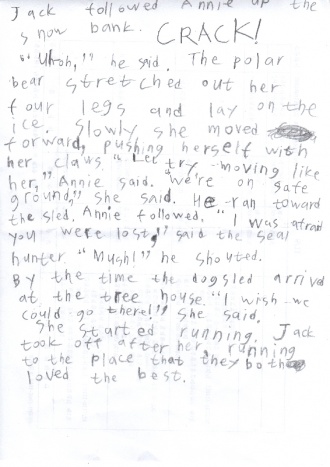 Jack followed Annie up the
snow bank. CRACK!
"Uhoh," he said. The polar
bear stretched out her
four legs and lay on the
ice. Slowly she moved
forward, pushing herself with
her claws "Let try moving like
her," Annie said. we're on safe
ground," she said. He ran toward
the sled. Annie followed. "I was afraid
you were lost," said the seal
hunter. "Mush!" he shouted.
By the time the dogsled arrival
at the tree house. "I wish we
could go there!" she said.
She started running. Jack
took off after her, running
to the place that they both
loved the best.